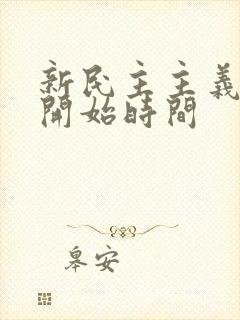 新民主主義
開始時間
皋安